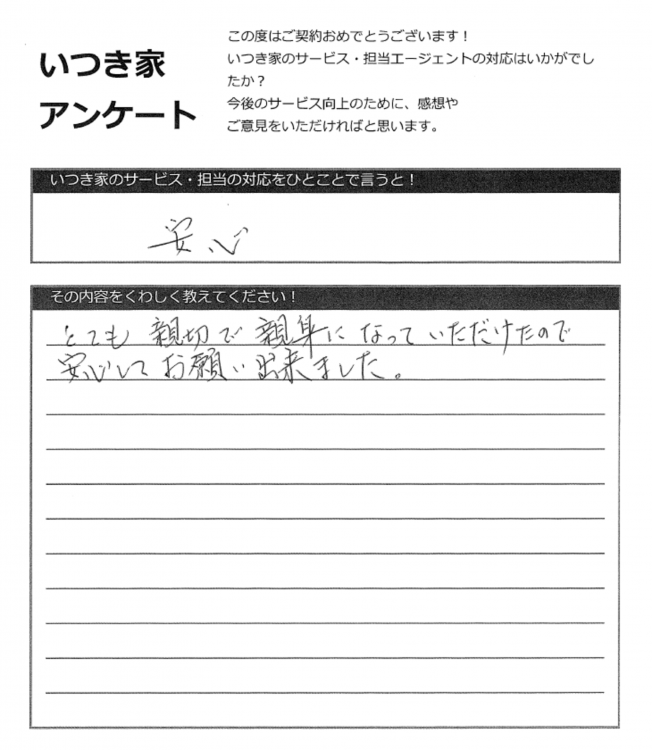 いつき家
アンケート
この度はご契約おめでとうございます！
いつき家のサービス・担当エージェントの対応はいかがでし
たか？
今後のサービス向上のために、感想や
ご意見をいただければと思います。
いつき家のサービス・担当の対応をひとことで言うと！
安心
その内容をくわしく教えてください！
とても親切で親身になっていただけたので
安心してお願い出来ました。